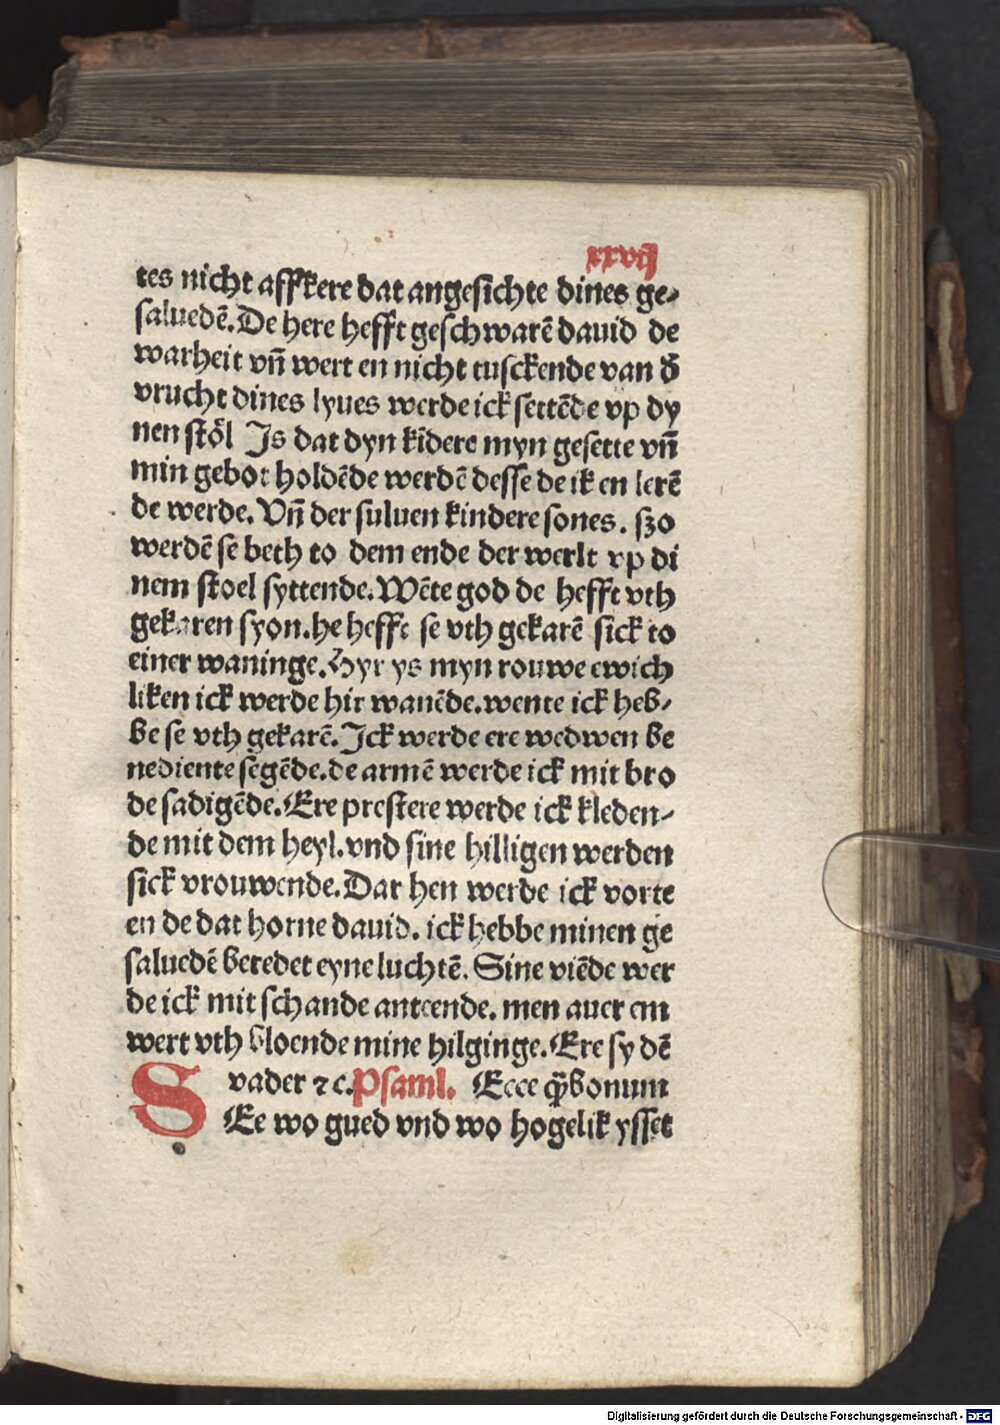 xxvij
tes nicht affkere dat angesichte dines ge-
saluedē. De here hefft geschwarē dauid de
warheit vn̄ wert en nicht tusckende van d̄
vrucht dines lyues werde ick settēde vp dy
nen stōl Is dat dyn kīdere myn gesette vn̄
min gebot holdēde werdē desse de ik en lerē
de werde. Vn̄ der suluen kindere sones. szo
werdē se beth to dem ende der werlt vp di
nem stoel syttende. Wēte god de hefft vth
gekaren syon. he hefft se vth gekarē sick to
einer waninge. Hyr ys myn rouwe ewich
liken ick werde hir wanēde. wente ick heb-
be se vth gekarē. Ick werde ere wedwen be
nediente segēde. de armē werde ick mit bro
de sadigēde. Ere prestere werde ick kleden-
de mit dem heyl. vnd sine hilligen werden
sick vrouwende. Dar hen werde ick vorte
en de dat horne dauid. ick hebbe minen ge
saluedē beredet eyne luchtē. Sine viēde wer
de ick mit schande anteende. men auer em
wert vth bloende mine hilginge. Ere sy dē
vader ⁊ c. Psaml. Ecce q̄ bonum
SEe wo gued vnd wo hogelik ysset
Digitalisierung gefördert durch die Deutsche Forschungsgemeinschaft - DFG